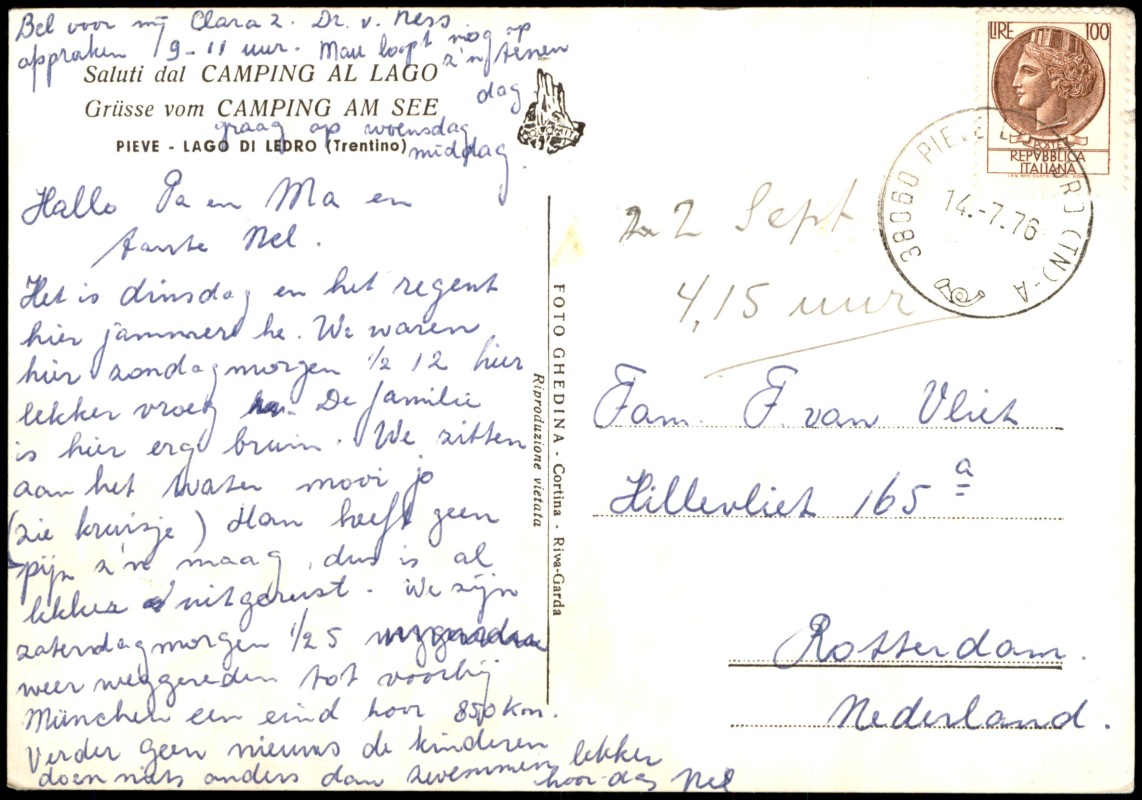 Bel voor mij Clara z. Dr. v. Ness.
afspraken 9-11 uur. Mau loopt nog op
z'n tenen
dag
graag op woensdag
middag.
Saluti dal CAMPING AL LAGO
Grüsse vom CAMPING AM SEE
PIEVE - LAGO DI LEDRO (Trentino)
DOLOMITI
Hallo Pa en Ma en
tante Nel.
Het is dinsdag en het regent
hier jammer he. We waren
hier zondagmorgen 1/2 12 hier
lekker vroeg. De familie
is hier erg bruin. We zitten
aan het water mooi jo
(zie kruisje) Han heeft geen
pijn z'n maag, dus is al
lekker uitgerust. We zijn
zaterdagmorgen 1/2 5
weer weggereden tot voorbij
München een eind hoor 850 km.
Verder geen nieuws de kinderen
doen niets anders dan zwemmen lekker
hoor. dag Nel
FOTO GHEDINA - Cortina - Riva-Garda
Riproduzione vietata
LIRE 100
POSTE
REPVBBLICA
ITALIANA
38060 PIEVE (TN)-A
14.-7.76
22 Sept
4,15 uur
Fam. F. van Vliet
Hillevliet 165 a
Rotterdam.
Nederland.